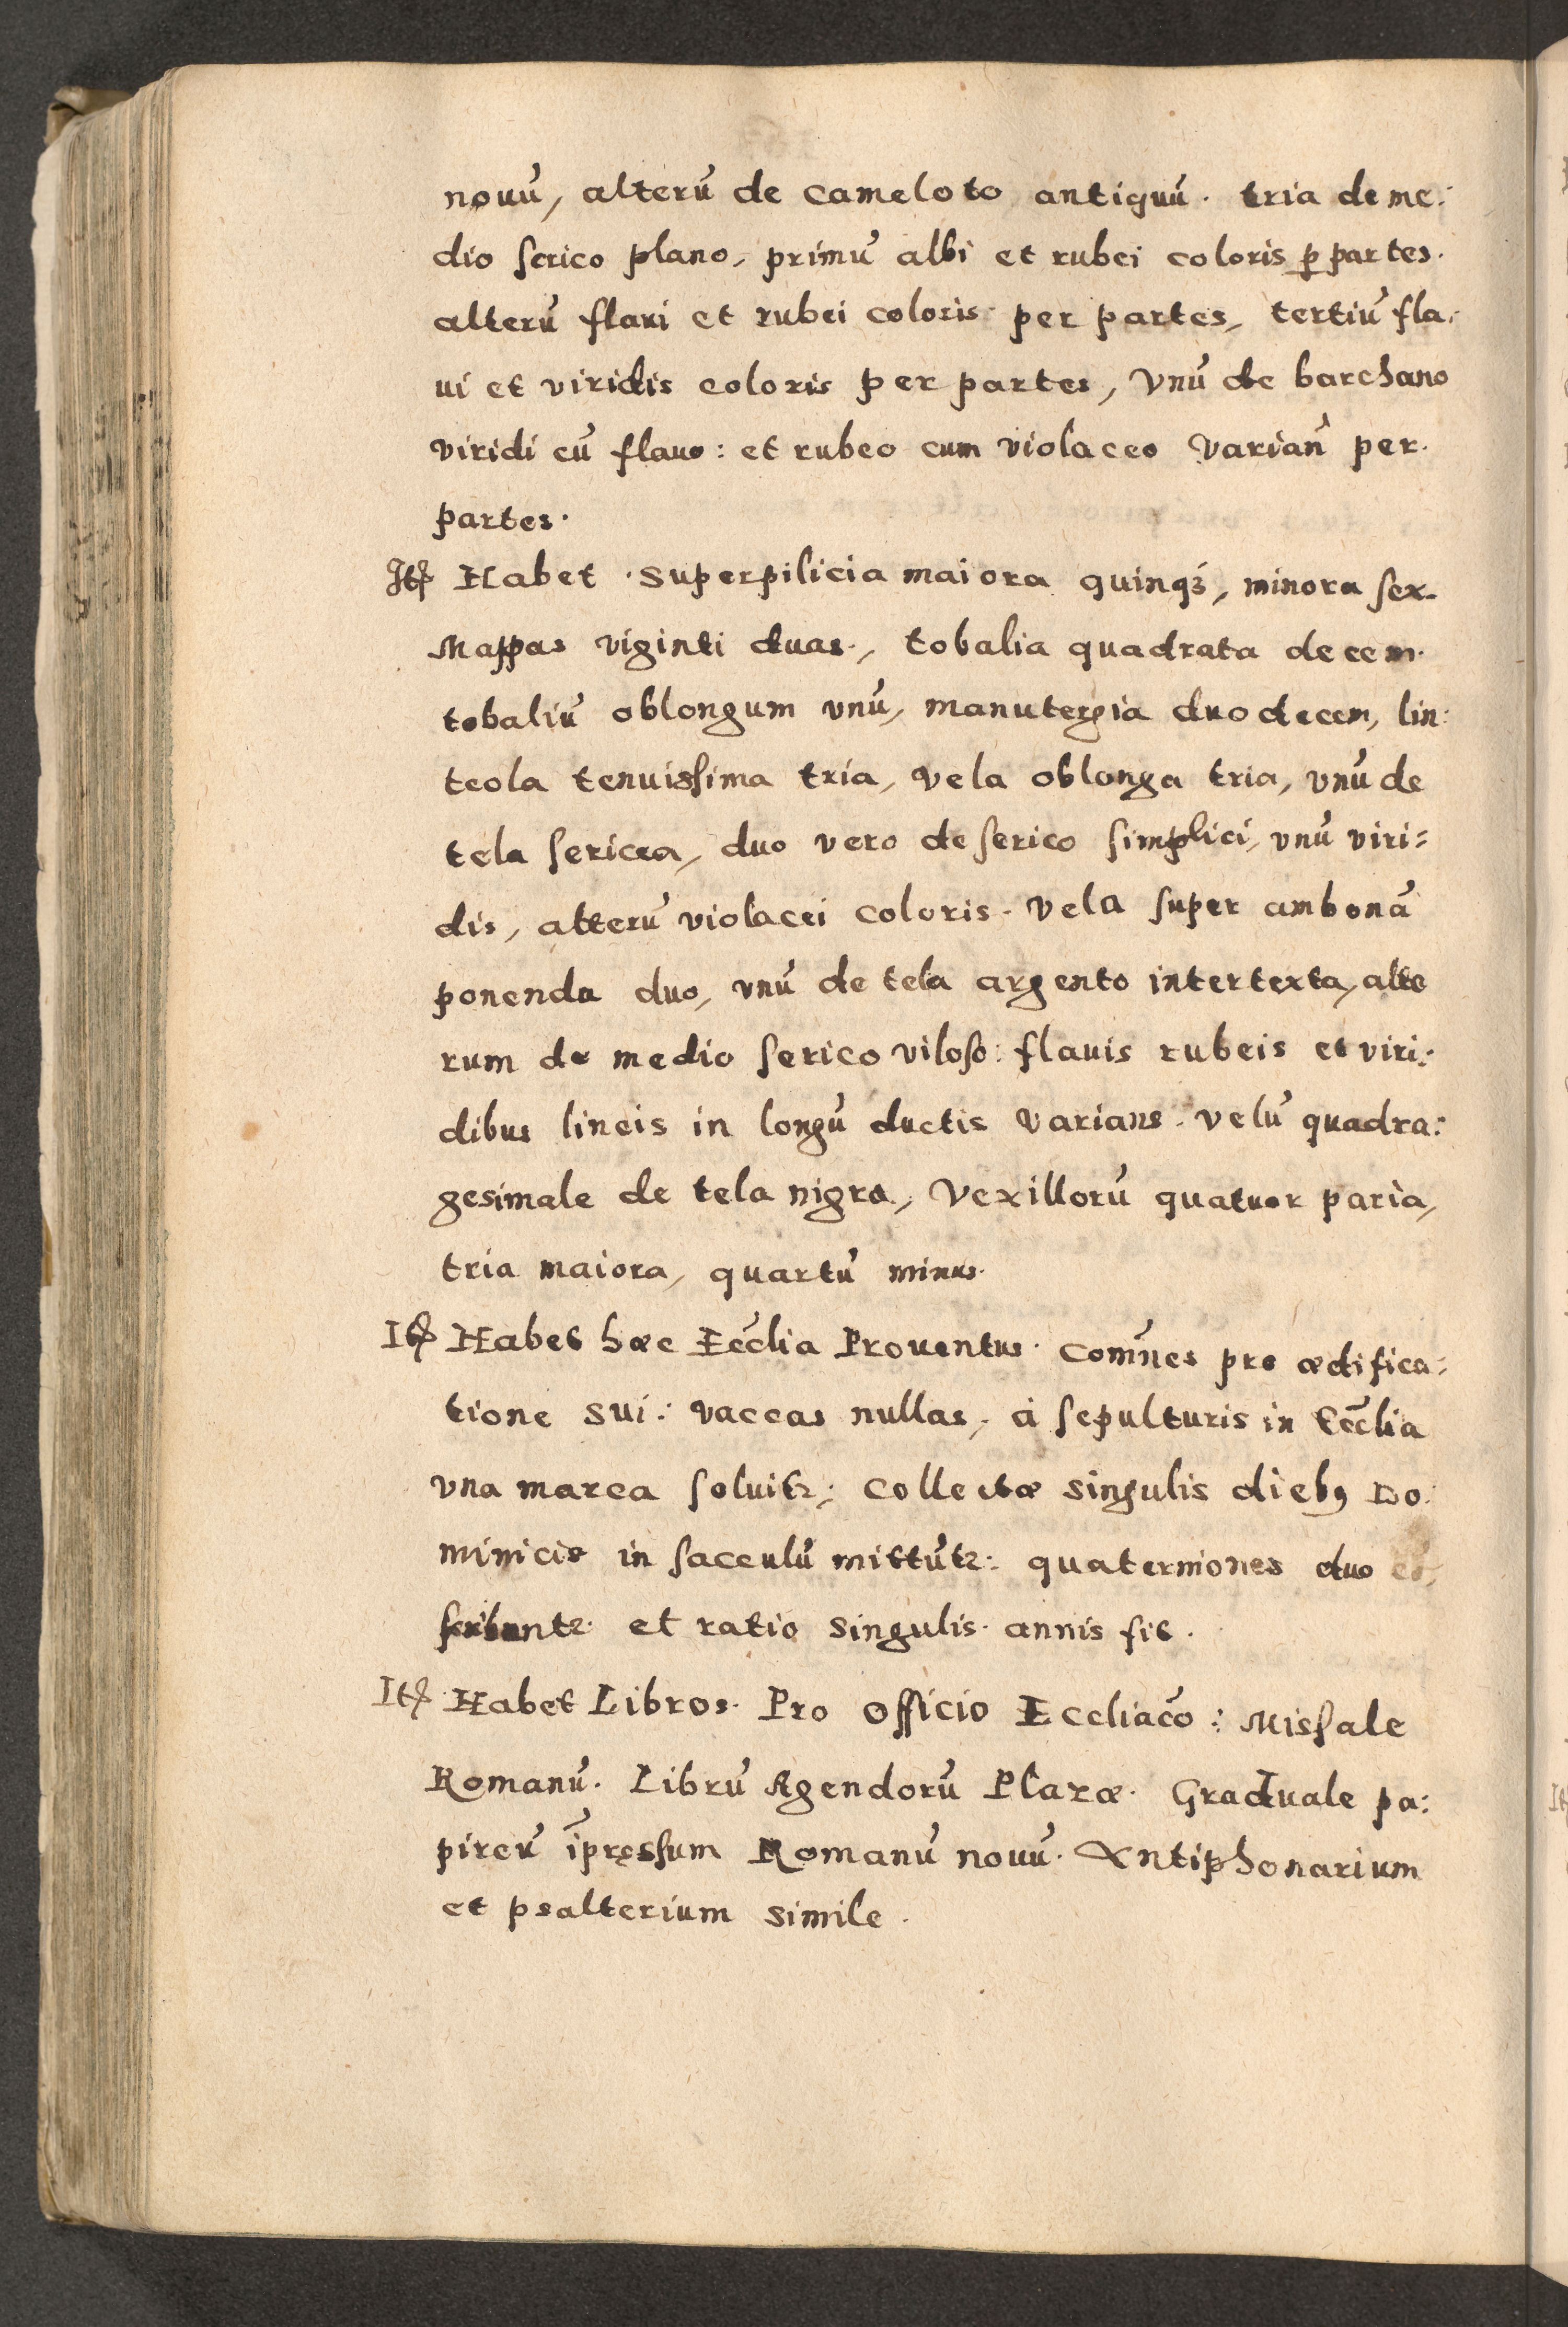 nouū, alterū de cameloto antiquū. tria de me:
dio serico plano, primū albi et rubei coloris ꝑ partes.
alterū flaui et rubei coloris per partes, tertiū fla:
ui et viridis coloris per partes, Vnū de barchano
viridi cū flauo: et rubeo cum violaceo varian̄ per
partes.
Itꝑ Habet superpilicia maiora quinqꝫ, minora sex.
Mappas viginti duas, tobalia quadrata decem.
tobaliū oblongum vnū, manutergia duodecem, lin:
teola tenuissima tria, vela oblonga tria, vnū de
tela sericea, duo vero de serico simplici, vnū viri:
dis, alterū violacei coloris. vela super ambonā
ponenda duo, vnū de tela argento intertexta, alte
rum de medio serico viloso: flauis rubeis et viri:
dibus lineis in longū ductis varians. velū quadra:
gesimale de tela nigra, Vexillorū quatuor paria,
tria maiora, quartū minus.
Itꝑ Habet hæc Eccłia Prouentus. Com̄nes pro ædifica:
tione sui: vaccas nullas, à sepulturis in Eccłia
vna marca soluitꝛ; collectæ singulis diebꝯ Do:
minicis in sacculū mittūtꝛ: quaterniones duo
scribuntꝛ et ratio singulis annis fit.
Itꝑ Habet Libros Pro officio Eccliacō: Missale
Romanū. Librū Agendorū Plaræ. Graduale pa:
pireū īpręssum Romanū nouū. Antiphonarium
et psalterium simile.